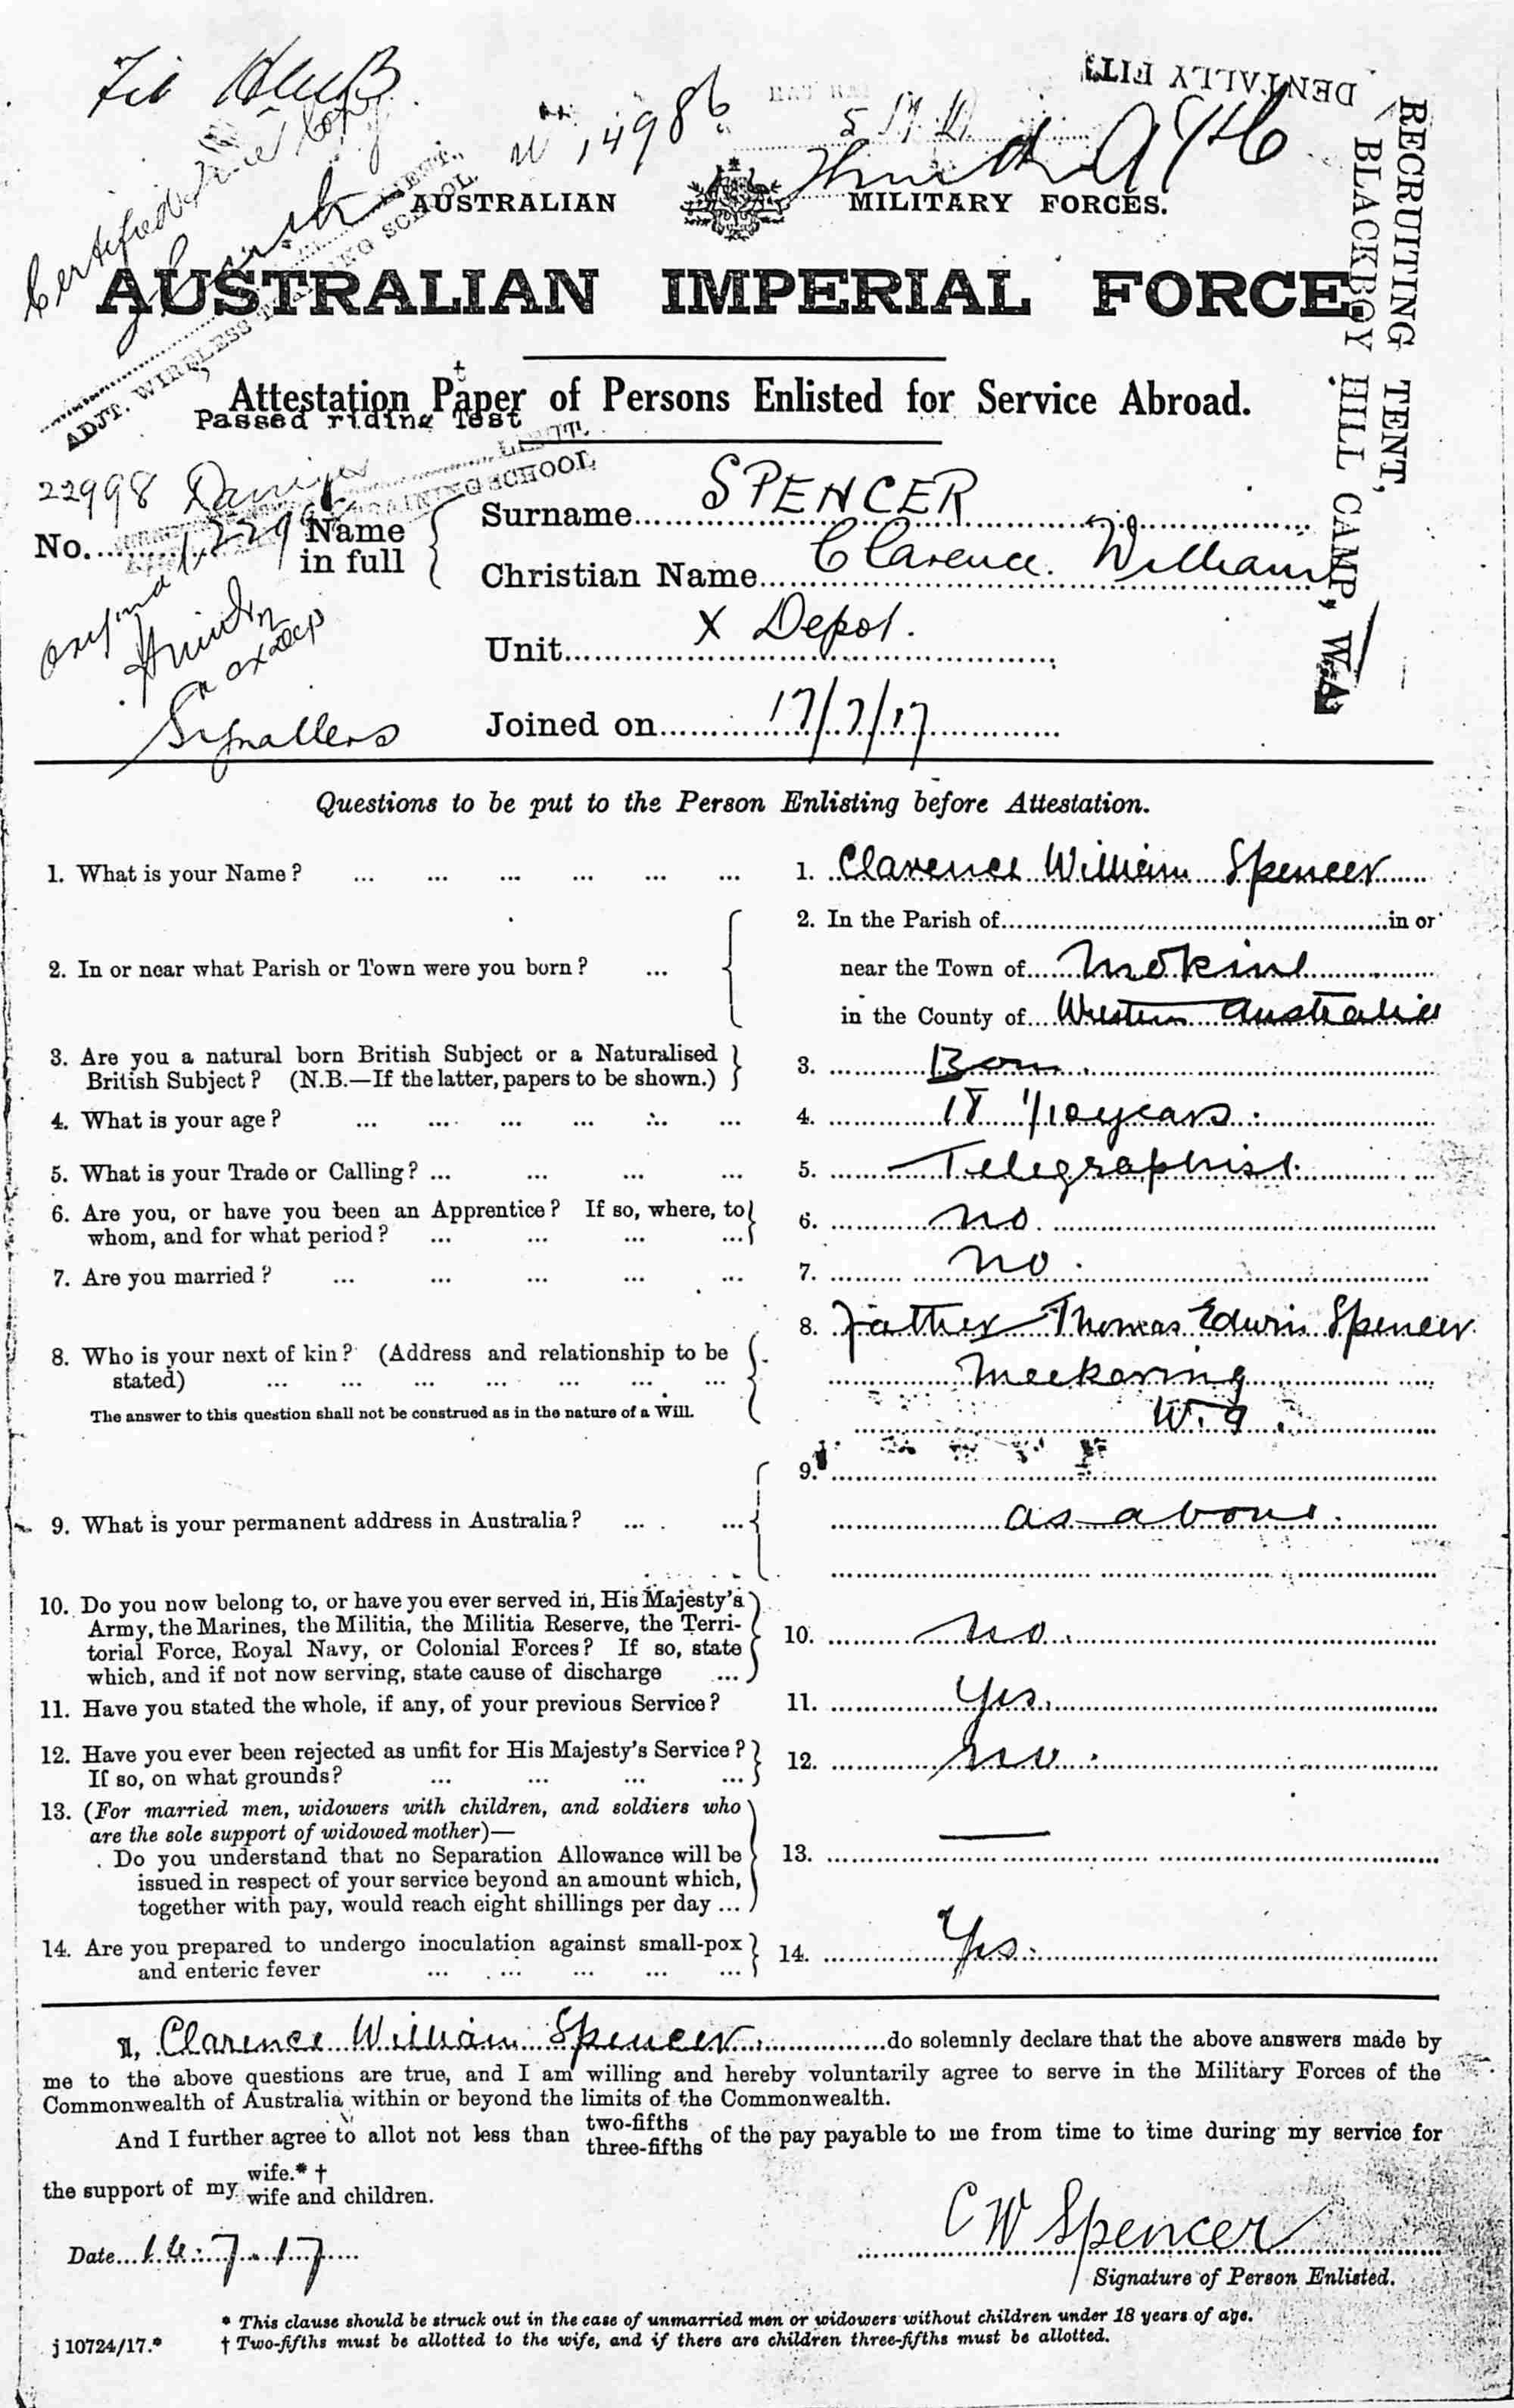 Fit
Certified true Copy
14986
DENTALLY FIT
RECRUITING TENT,
BLACKBOY HILL CAMP, W.A.
AUSTRALIAN MILITARY FORCES.
AUSTRALIAN IMPERIAL FORCE.
ADJT. WIRELESS TRAINING SCHOOL.
Attestation Paper of Persons Enlisted for Service Abroad.
Passed riding Test
LIEUT.
TRAINING SCHOOL
22998
No.
Name in full
Surname SPENCER
Christian Name Clarence William
Unit X Depot.
Signallers
Joined on 17/7/17
Questions to be put to the Person Enlisting before Attestation.
1. What is your Name? ... ... ... ... ... ... 1. Clarence William Spencer
2. In or near what Parish or Town were you born? ... 2. In the Parish of in or
near the Town of Mokine
in the County of Western Australia
3. Are you a natural born British Subject or a Naturalised
British Subject? (N.B.—If the latter, papers to be shown.) 3. Born
4. What is your age? ... ... ... ... ... ... 4. 18 1/10 years.
5. What is your Trade or Calling? ... ... ... ... 5. Telegraphist.
6. Are you, or have you been an Apprentice? If so, where, to
whom, and for what period? ... ... ... ... 6. no.
7. Are you married? ... ... ... ... ... 7. no.
8. Who is your next of kin? (Address and relationship to be
stated) ... ... ... ... ... ... ...
The answer to this question shall not be construed as in the nature of a Will.
8. Father Thomas Edwin Spencer
Meckering
W.A.
9. What is your permanent address in Australia? ... ... 9.
as above.
10. Do you now belong to, or have you ever served in, His Majesty's
Army, the Marines, the Militia, the Militia Reserve, the Terri-
torial Force, Royal Navy, or Colonial Forces? If so, state
which, and if not now serving, state cause of discharge ... 10. no.
11. Have you stated the whole, if any, of your previous Service? 11. Yes.
12. Have you ever been rejected as unfit for His Majesty's Service?
If so, on what grounds? ... ... ... ... 12. no.
13. (For married men, widowers with children, and soldiers who
are the sole support of widowed mother)—
Do you understand that no Separation Allowance will be
issued in respect of your service beyond an amount which,
together with pay, would reach eight shillings per day ... 13. —
14. Are you prepared to undergo inoculation against small-pox
and enteric fever ... ... ... ... ... 14. Yes.
I, Clarence William Spencer do solemnly declare that the above answers made by
me to the above questions are true, and I am willing and hereby voluntarily agree to serve in the Military Forces of the
Commonwealth of Australia within or beyond the limits of the Commonwealth.
And I further agree to allot not less than two-fifths three-fifths of the pay payable to me from time to time during my service for
the support of my wife.* † wife and children.
C W Spencer
Date 16.7.17
Signature of Person Enlisted.
* This clause should be struck out in the case of unmarried men or widowers without children under 18 years of age.
j 10724/17.* † Two-fifths must be allotted to the wife, and if there are children three-fifths must be allotted.